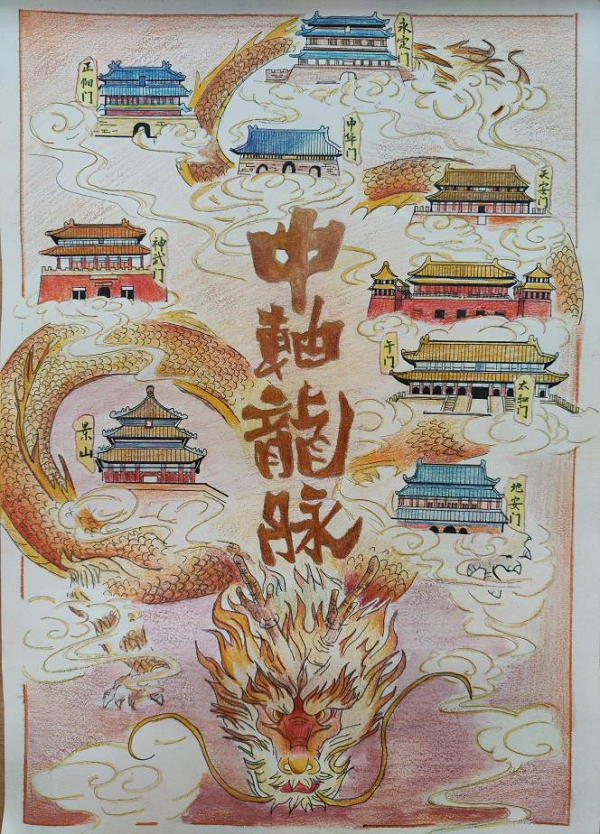 永定门
正阳门
中华门
天安门
神武门
午门
太和门
景山
地安门
中軸龍脉